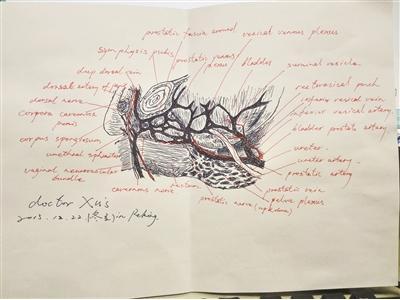 prostatic fascia around
vesical venous plexus
symphysis pubis
prostatic venous
plexus
bladder
seminal vesicle
deep dorsal vein
rectovesical pouch
dorsal artery of penis
inferior vesical vein
dorsal nerve
inferior vesical artery
corpora cavernosa
penis
bladder prostate artery
corpus spongiosum
ureter
urethral sphincter
ureter artery
vaginal neurovascular
bundle
prostatic artery
cavernous nerve
rectum
prostatic vein
pelvic plexus
prostatic nerve (up & down)
doctor Xu's
2015.12.22. in Peking